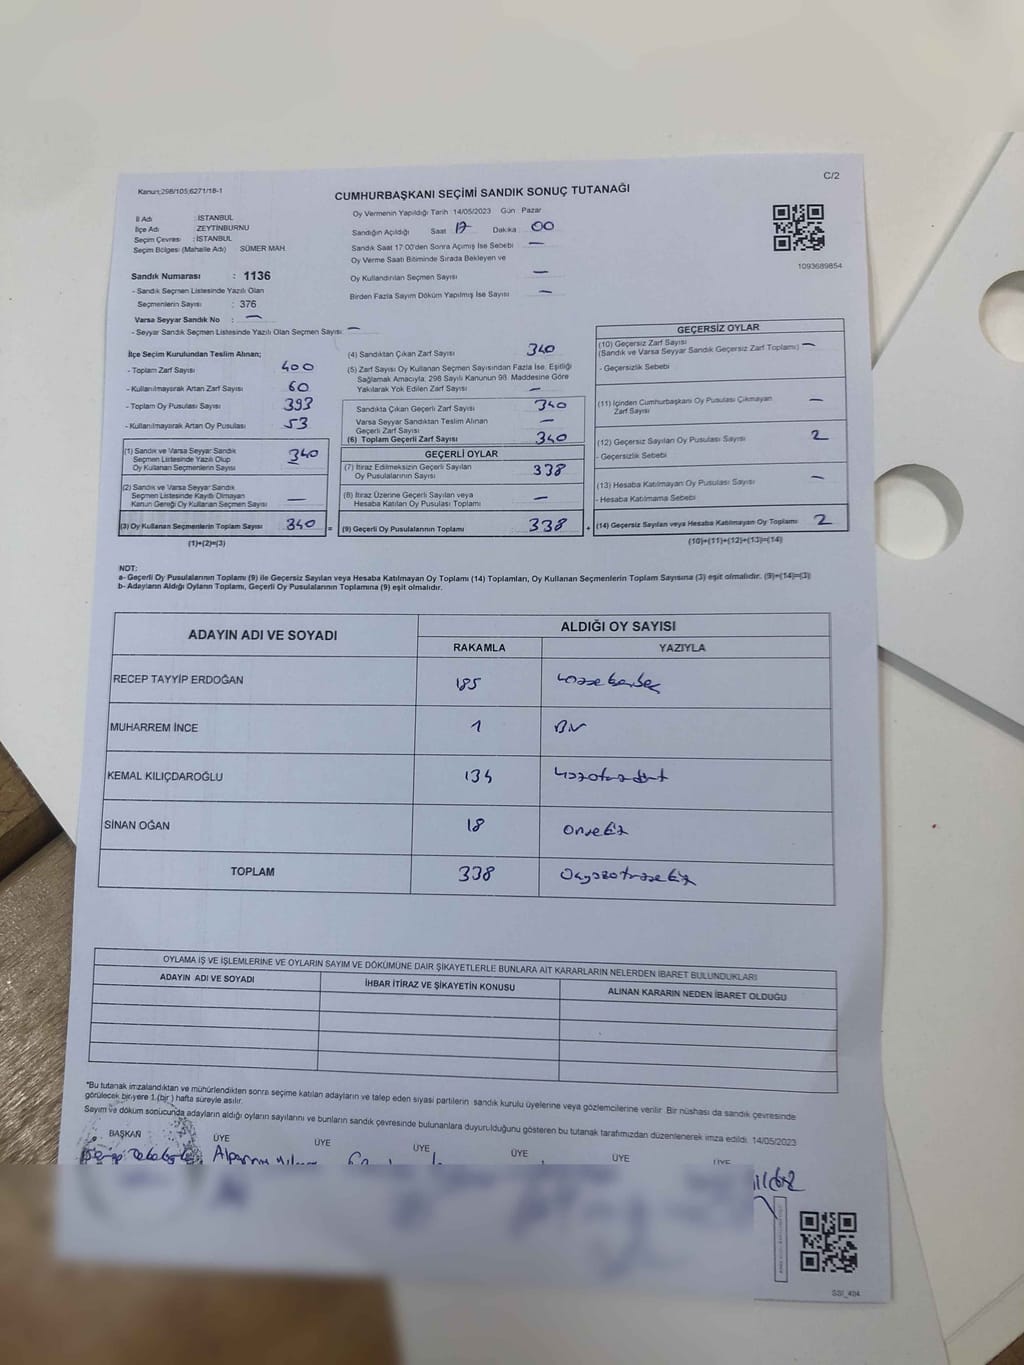 C/2
Kanun;298/105,6271/18-1
CUMHURBAŞKANI SEÇİMİ SANDIK SONUÇ TUTANAĞI
İl Adı : İSTANBUL
İlçe Adı : ZEYTİNBURNU
Seçim Çevresi : İSTANBUL
Seçim Bölgesi (Mahalle Adı) SÜMER MAH.
Oy Vermenin Yapıldığı Tarih 14/05/2023 Gün Pazar
Sandığın Açıldığı Saat 17 Dakika 00
Sandık Saat 17:00'den Sonra Açımış İse Sebebi —
Oy Verme Saati Bitiminde Sırada Bekleyen ve
Oy Kullandırılan Seçmen Sayısı —
Birden Fazla Sayım Döküm Yapılmış İse Sayısı —
1093689854
Sandık Numarası : 1136
- Sandık Seçmen Listesinde Yazılı Olan
Seçmenlerin Sayısı : 376
Varsa Seyyar Sandık No : —
- Seyyar Sandık Seçmen Listesinde Yazılı Olan Seçmen Sayısı —
İlçe Seçim Kurulundan Teslim Alınan;
- Toplam Zarf Sayısı 400
- Kullanılmayarak Artan Zarf Sayısı 60
- Toplam Oy Pusulası Sayısı 393
- Kullanılmayarak Artan Oy Pusulası 53
(1) Sandık ve Varsa Seyyar Sandık
Seçmen Listesinde Yazılı Olup
Oy Kullanan Seçmenlerin Sayısı 340
(2) Sandık ve Varsa Seyyar Sandık
Seçmen Listesinde Kayıtlı Olmayan
Kanun Gereği Oy Kullanan Seçmen Sayısı —
(3) Oy Kullanan Seçmenlerin Toplam Sayısı 340 =
(1)+(2)=(3)
(4) Sandıktan Çıkan Zarf Sayısı 340
(5) Zarf Sayısı Oy Kullanan Seçmen Sayısından Fazla İse, Eşitliği
Sağlamak Amacıyla; 298 Sayılı Kanunun 98. Maddesine Göre
Yakılarak Yok Edilen Zarf Sayısı —
Sandıkta Çıkan Geçerli Zarf Sayısı 340
Varsa Seyyar Sandıktan Teslim Alınan
Geçerli Zarf Sayısı —
(6) Toplam Geçerli Zarf Sayısı 340
GEÇERLİ OYLAR
(7) İtiraz Edilmeksizin Geçerli Sayılan
Oy Pusulalarının Sayısı 338
(8) İtiraz Üzerine Geçerli Sayılan veya
Hesaba Katılan Oy Pusulası Toplamı —
(9) Geçerli Oy Pusulalarının Toplamı 338 +
GEÇERSİZ OYLAR
(10) Geçersiz Zarf Sayısı
(Sandık ve Varsa Seyyar Sandık Geçersiz Zarf Toplamı) —
- Geçersizlik Sebebi
(11) İçinden Cumhurbaşkanı Oy Pusulası Çıkmayan
Zarf Sayısı —
(12) Geçersiz Sayılan Oy Pusulası Sayısı 2
- Geçersizlik Sebebi
(13) Hesaba Katılmayan Oy Pusulası Sayısı —
- Hesaba Katılmama Sebebi
(14) Geçersiz Sayılan veya Hesaba Katılmayan Oy Toplamı 2
(10)+(11)+(12)+(13)=(14)
NOT:
a- Geçerli Oy Pusulalarının Toplamı (9) ile Geçersiz Sayılan veya Hesaba Katılmayan Oy Toplamı (14) Toplamları, Oy Kullanan Seçmenlerin Toplam Sayısına (3) eşit olmalıdır. (9)+(14)=(3)
b- Adayların Aldığı Oyların Toplamı, Geçerli Oy Pusulalarının Toplamına (9) eşit olmalıdır.
ADAYIN ADI VE SOYADI ALDIĞI OY SAYISI
RAKAMLA YAZIYLA
RECEP TAYYİP ERDOĞAN 185
MUHARREM İNCE 1 Bir
KEMAL KILIÇDAROĞLU 134
SİNAN OĞAN 18 Onsekiz
TOPLAM 338
OYLAMA İŞ VE İŞLEMLERİNE VE OYLARIN SAYIM VE DÖKÜMÜNE DAİR ŞİKAYETLERLE BUNLARA AİT KARARLARIN NELERDEN İBARET BULUNDUKLARI
ADAYIN ADI VE SOYADI İHBAR İTİRAZ VE ŞİKAYETİN KONUSU ALINAN KARARIN NEDEN İBARET OLDUĞU
*Bu tutanak imzalandıktan ve mühürlendikten sonra seçime katılan adayların ve talep eden siyasi partilerin sandık kurulu üyelerine veya gözlemcilerine verilir. Bir nüshası da sandık çevresinde
görülecek bir yere 1 (bir ) hafta süreyle asılır.
Sayım ve döküm sonucunda adayların aldığı oyların sayılarını ve bunların sandık çevresinde bulunanlara duyurulduğunu gösteren bu tutanak tarafımızdan düzenlenerek imza edildi. 14/05/2023
BAŞKAN ÜYE ÜYE ÜYE ÜYE ÜYE ÜYE
SSI_404